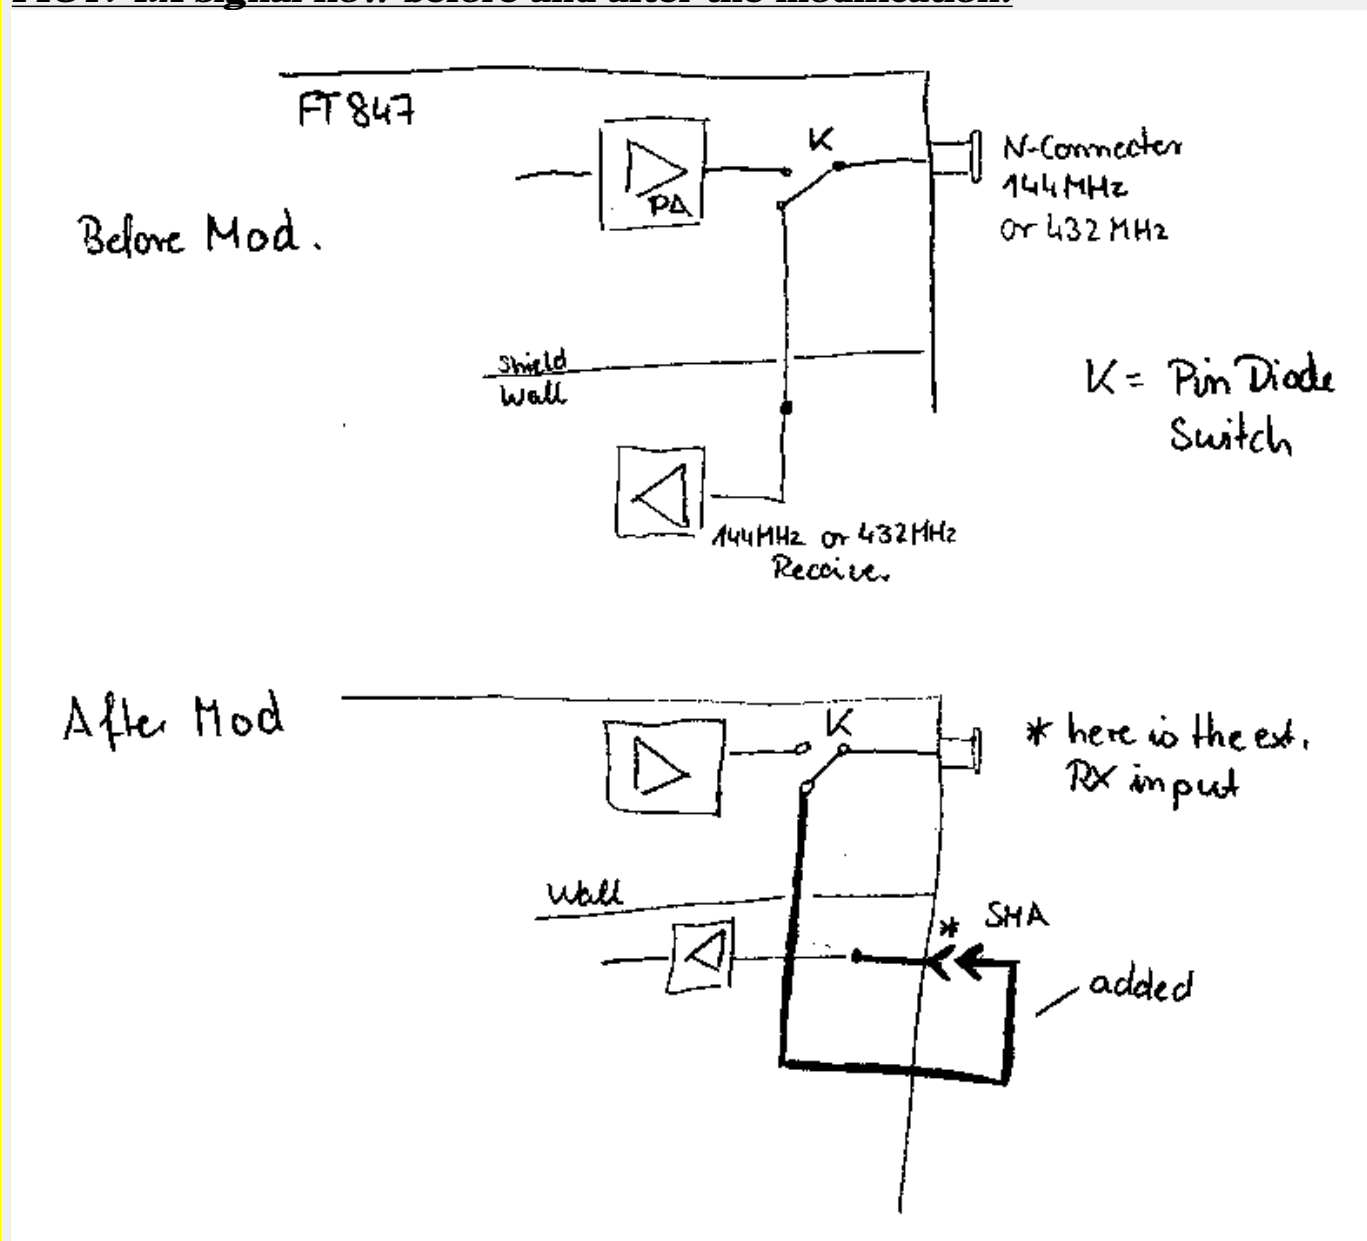 FT 847
K
N-Connector
144MHz
or 432 MHz
PA
Before Mod.
Shield
Wall
K = Pin Diode
Switch
144MHz or 432MHz
Receiver
After Mod
K
* here is the ext.
RX input
Wall
* SMA
added